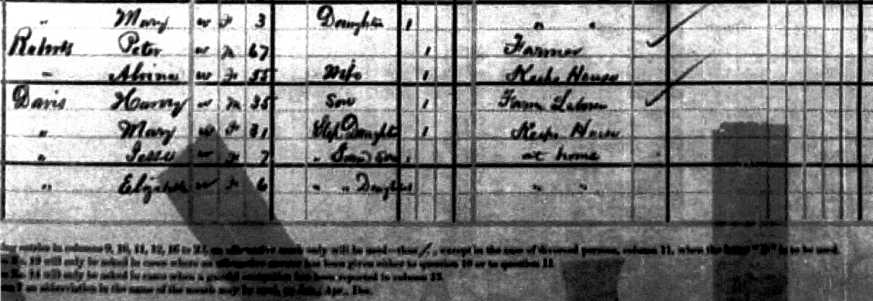 " Mary w F 3 Daughter 1 " "
Roberts Peter w M 67 1 Farmer
" Alvina w F 55 Wife 1 Keeps House
Davis Harvey w M 35 Son 1 Farm Laborer
" Mary w F 31 Step Daughter 1 Keeps House
" Jesse w 7 " Grand Son 1 at home
" Elizabeth w F 6 " " Daughter " "
entries in columns 9, 10, 11, 12, 16 to 21, an affirmative mark only will be used—thus /, except in the case of divorced persons, column 11, when the letter "D" is to be used.
will only be asked in cases where an affirmative answer has been given either to question 10 or to question 11
No. 14 will only be asked in cases when a gainful occupation has been reported in column 13.
an abbreviation in the name of the month may be used, as Jan., Apr., Dec.